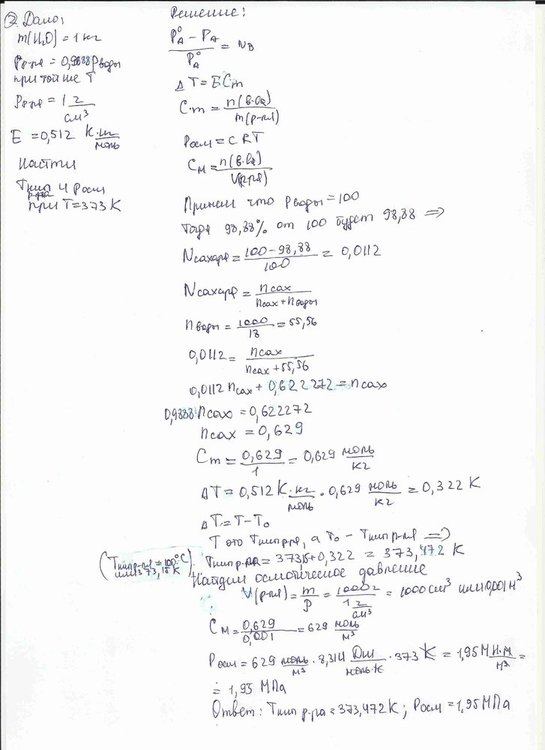 ② Дано:
m(H₂O) = 1 кг
Pр-ра = 0,9888 Pводы
при той же T
ρр-ра = 1 г/см³
E = 0,512 К·кг/моль
Найти
Tкип р-ра и Pосм
при T = 373 K
Решение:
(P°A − PA)/P°A = NB
ΔT = E Cm
Cm = n(в-ва)/m(р-ля)
Pосм = CRT
CM = n(в-ва)/V(р-ра)
Примем что Pводы = 100
Тогда 98,88% от 100 будет 98,88 ⇒
Nсахара = (100 − 98,88)/100 = 0,0112
Nсахара = nсах/(nсах + nводы)
nводы = 1000/18 = 55,56
0,0112 = nсах/(nсах + 55,56)
0,0112 nсах + 0,622272 = nсах
0,9888 nсах = 0,622272
nсах = 0,629
Cm = 0,629/1 = 0,629 моль/кг
ΔT = 0,512 К·кг/моль · 0,629 моль/кг = 0,322 K
ΔT = T − T₀
T это Tкип р-ра, а T₀ − Tкип р-ля ⇒
(Tкип р-ля = 100°C или 373,15 K) Tкип р-ра = 373,15 + 0,322 = 373,472 K
Найдем осмотическое давление
V(р-ля) = m/ρ = 1000 г/1 г/см³ = 1000 см³ или 0,001 м³
CM = 0,629/0,001 = 629 моль/м³
Pосм = 629 моль/м³ · 8,314 Дж/моль·К · 373 K = 1,95 М Н·м/м³ =
= 1,95 МПа
Ответ: Tкип р-ра = 373,472 K; Pосм = 1,95 МПа